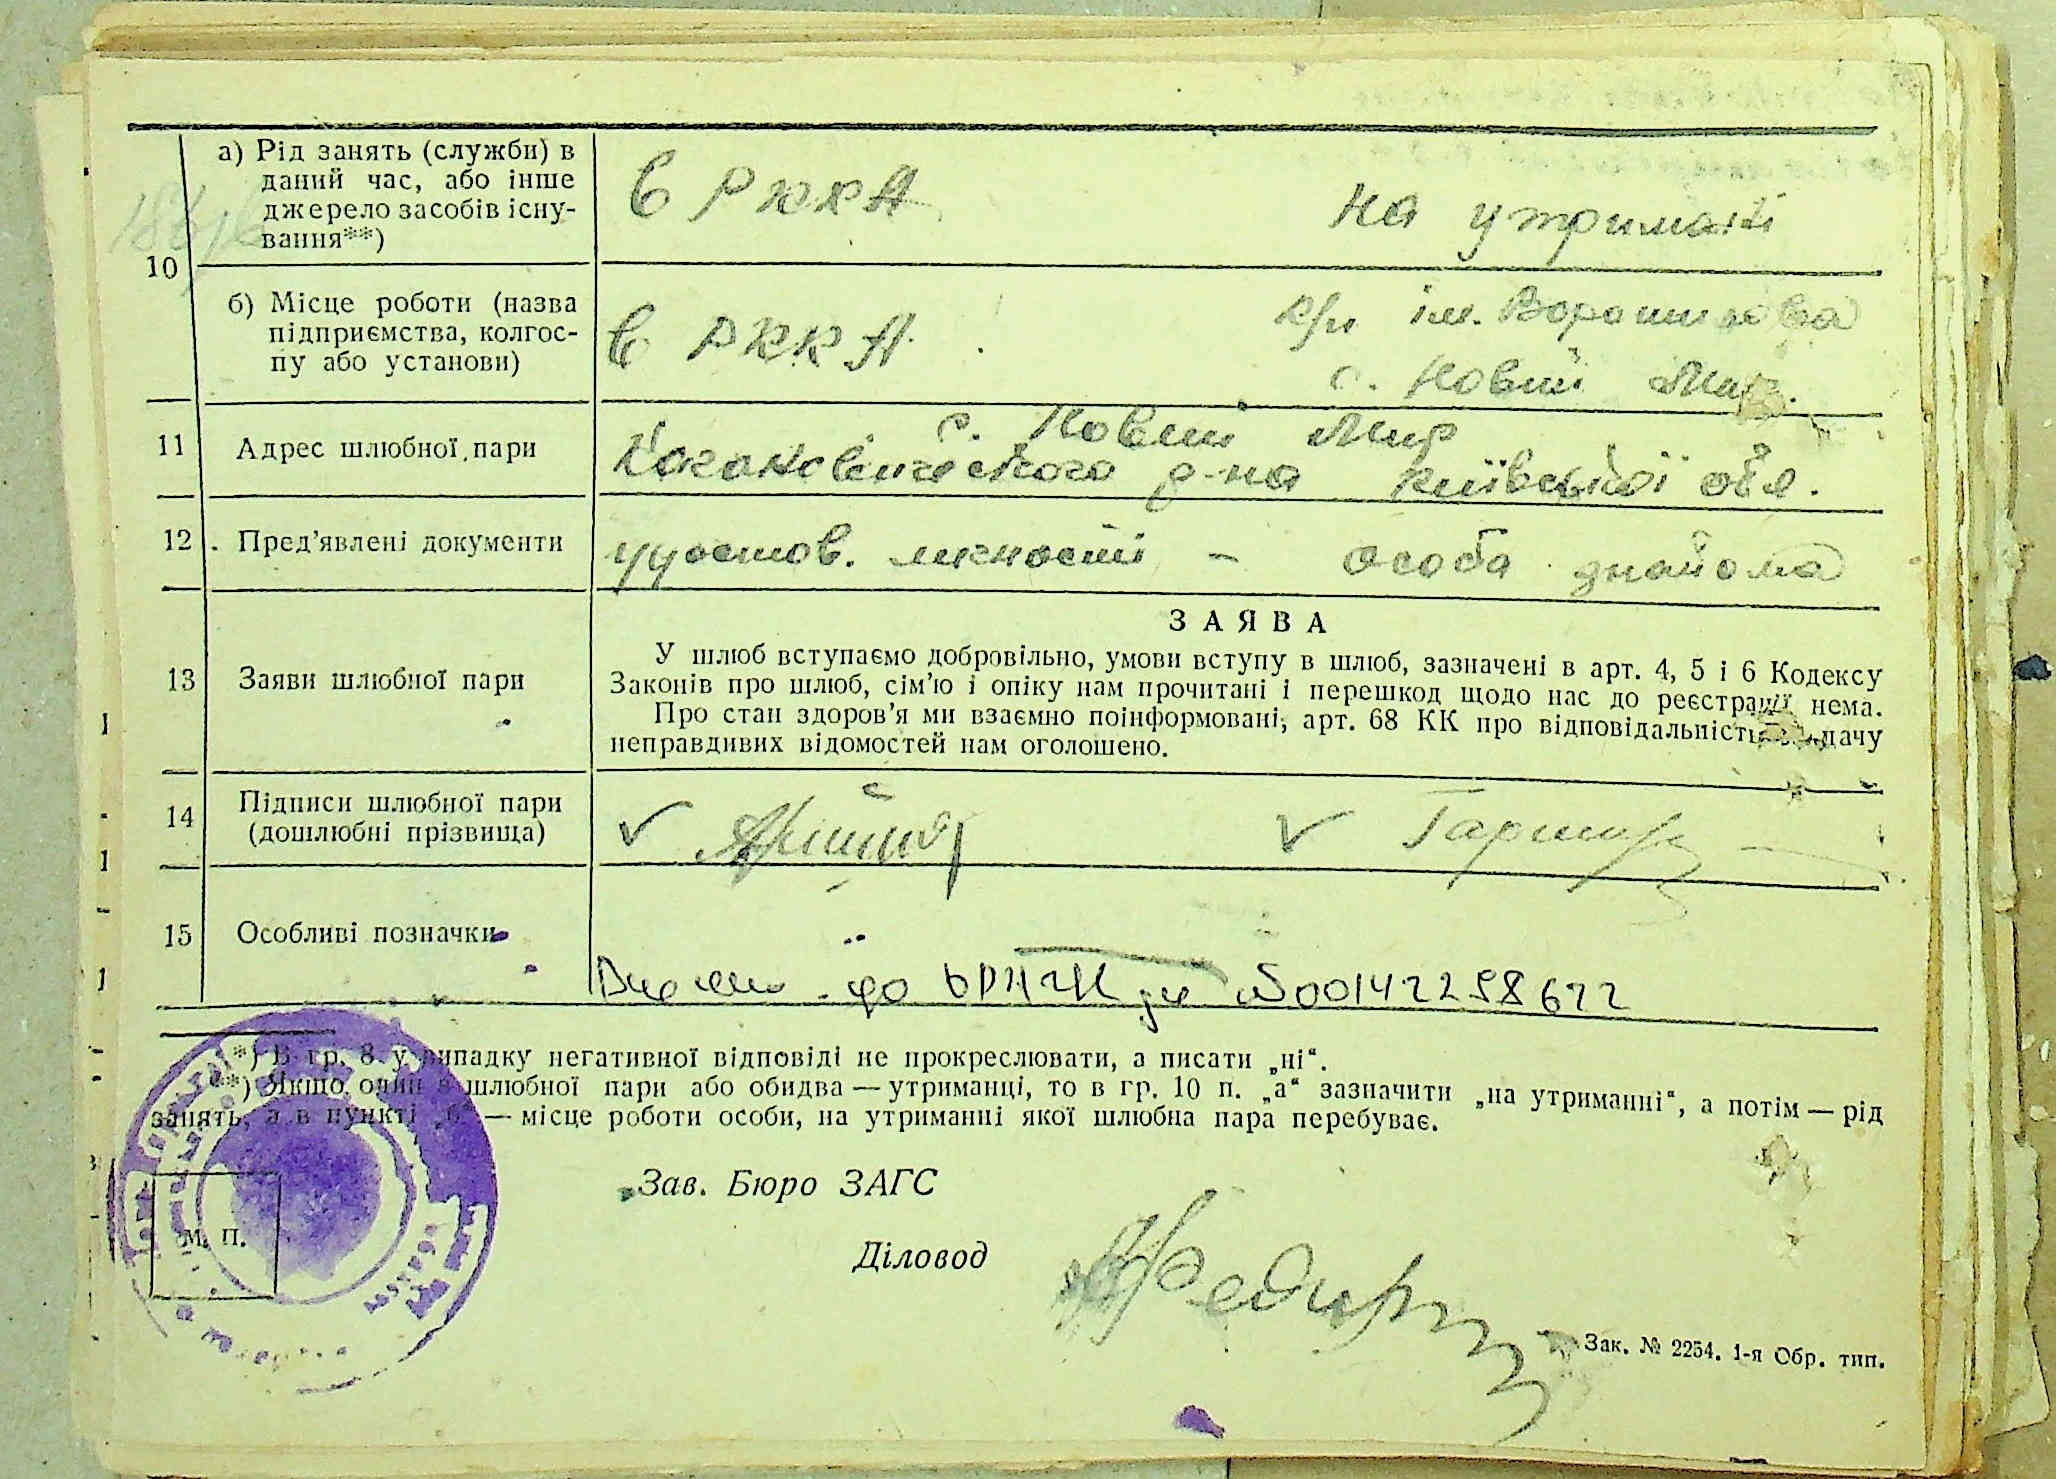 а) Рід занять (служби) в
даний час, або інше
джерело засобів існу-
вання**)
в РККА
на утримані
10
б) Місце роботи (назва
підприємства, колгос-
пу або установи)
в РККА
к/г ім. Ворошилова
с. Новий Мир.
11
Адрес шлюбної пари
с. Новий Мир
Кагановического р-на Київської обл.
12
Пред’явлені документи
удостов. личності – особа знайома
ЗАЯВА
13
Заяви шлюбної пари
У шлюб вступаємо добровільно, умови вступу в шлюб, зазначені в арт. 4, 5 і 6 Кодексу
Законів про шлюб, сім’ю і опіку нам прочитані і перешкод щодо нас до реєстрації нема.
Про стан здоров’я ми взаємно поінформовані, арт. 68 КК про відповідальність дачу
неправдивих відомостей нам оголошено.
14
Підписи шлюбної пари
(дошлюбні прізвища)
15
Особливі позначки
до № 00142258622
*) В гр. 8 у випадку негативної відповіді не прокреслювати, а писати „ні“.
**) Якщо один з шлюбної пари або обидва — утриманці, то в гр. 10 п. „а“ зазначити „на утриманні“, а потім — рід
занять, а в пункті „б“ — місце роботи особи, на утриманні якої шлюбна пара перебуває.
Зав. Бюро ЗАГС
М. П.
Діловод
Зак. № 2254. 1-я Обр. тип.